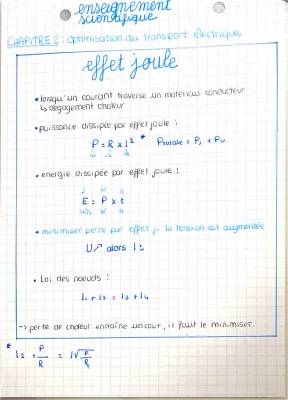 enseignement
scientifique
CHAPITRE 2 : optimisation du transport électrique
effet joule
• lorsqu'un courant traverse un matériau conducteur
↳ dégagement chaleur
• puissance dissipée par effet joule :
P = R x I² * Ptotale = P₁ + Pu
W Ω A
• energie dissipée par effet joule :
J W s
E = P x t
Wh W h
• minimiser perte par effet j. la tension est augmentée
U↗ alors I↓
• Loi des noeuds :
I₁ + I₂ = I₃ + I₄
→ perte de chaleur entraîne un cout, il faut le minimiser
* I² = P/R = I√P/R